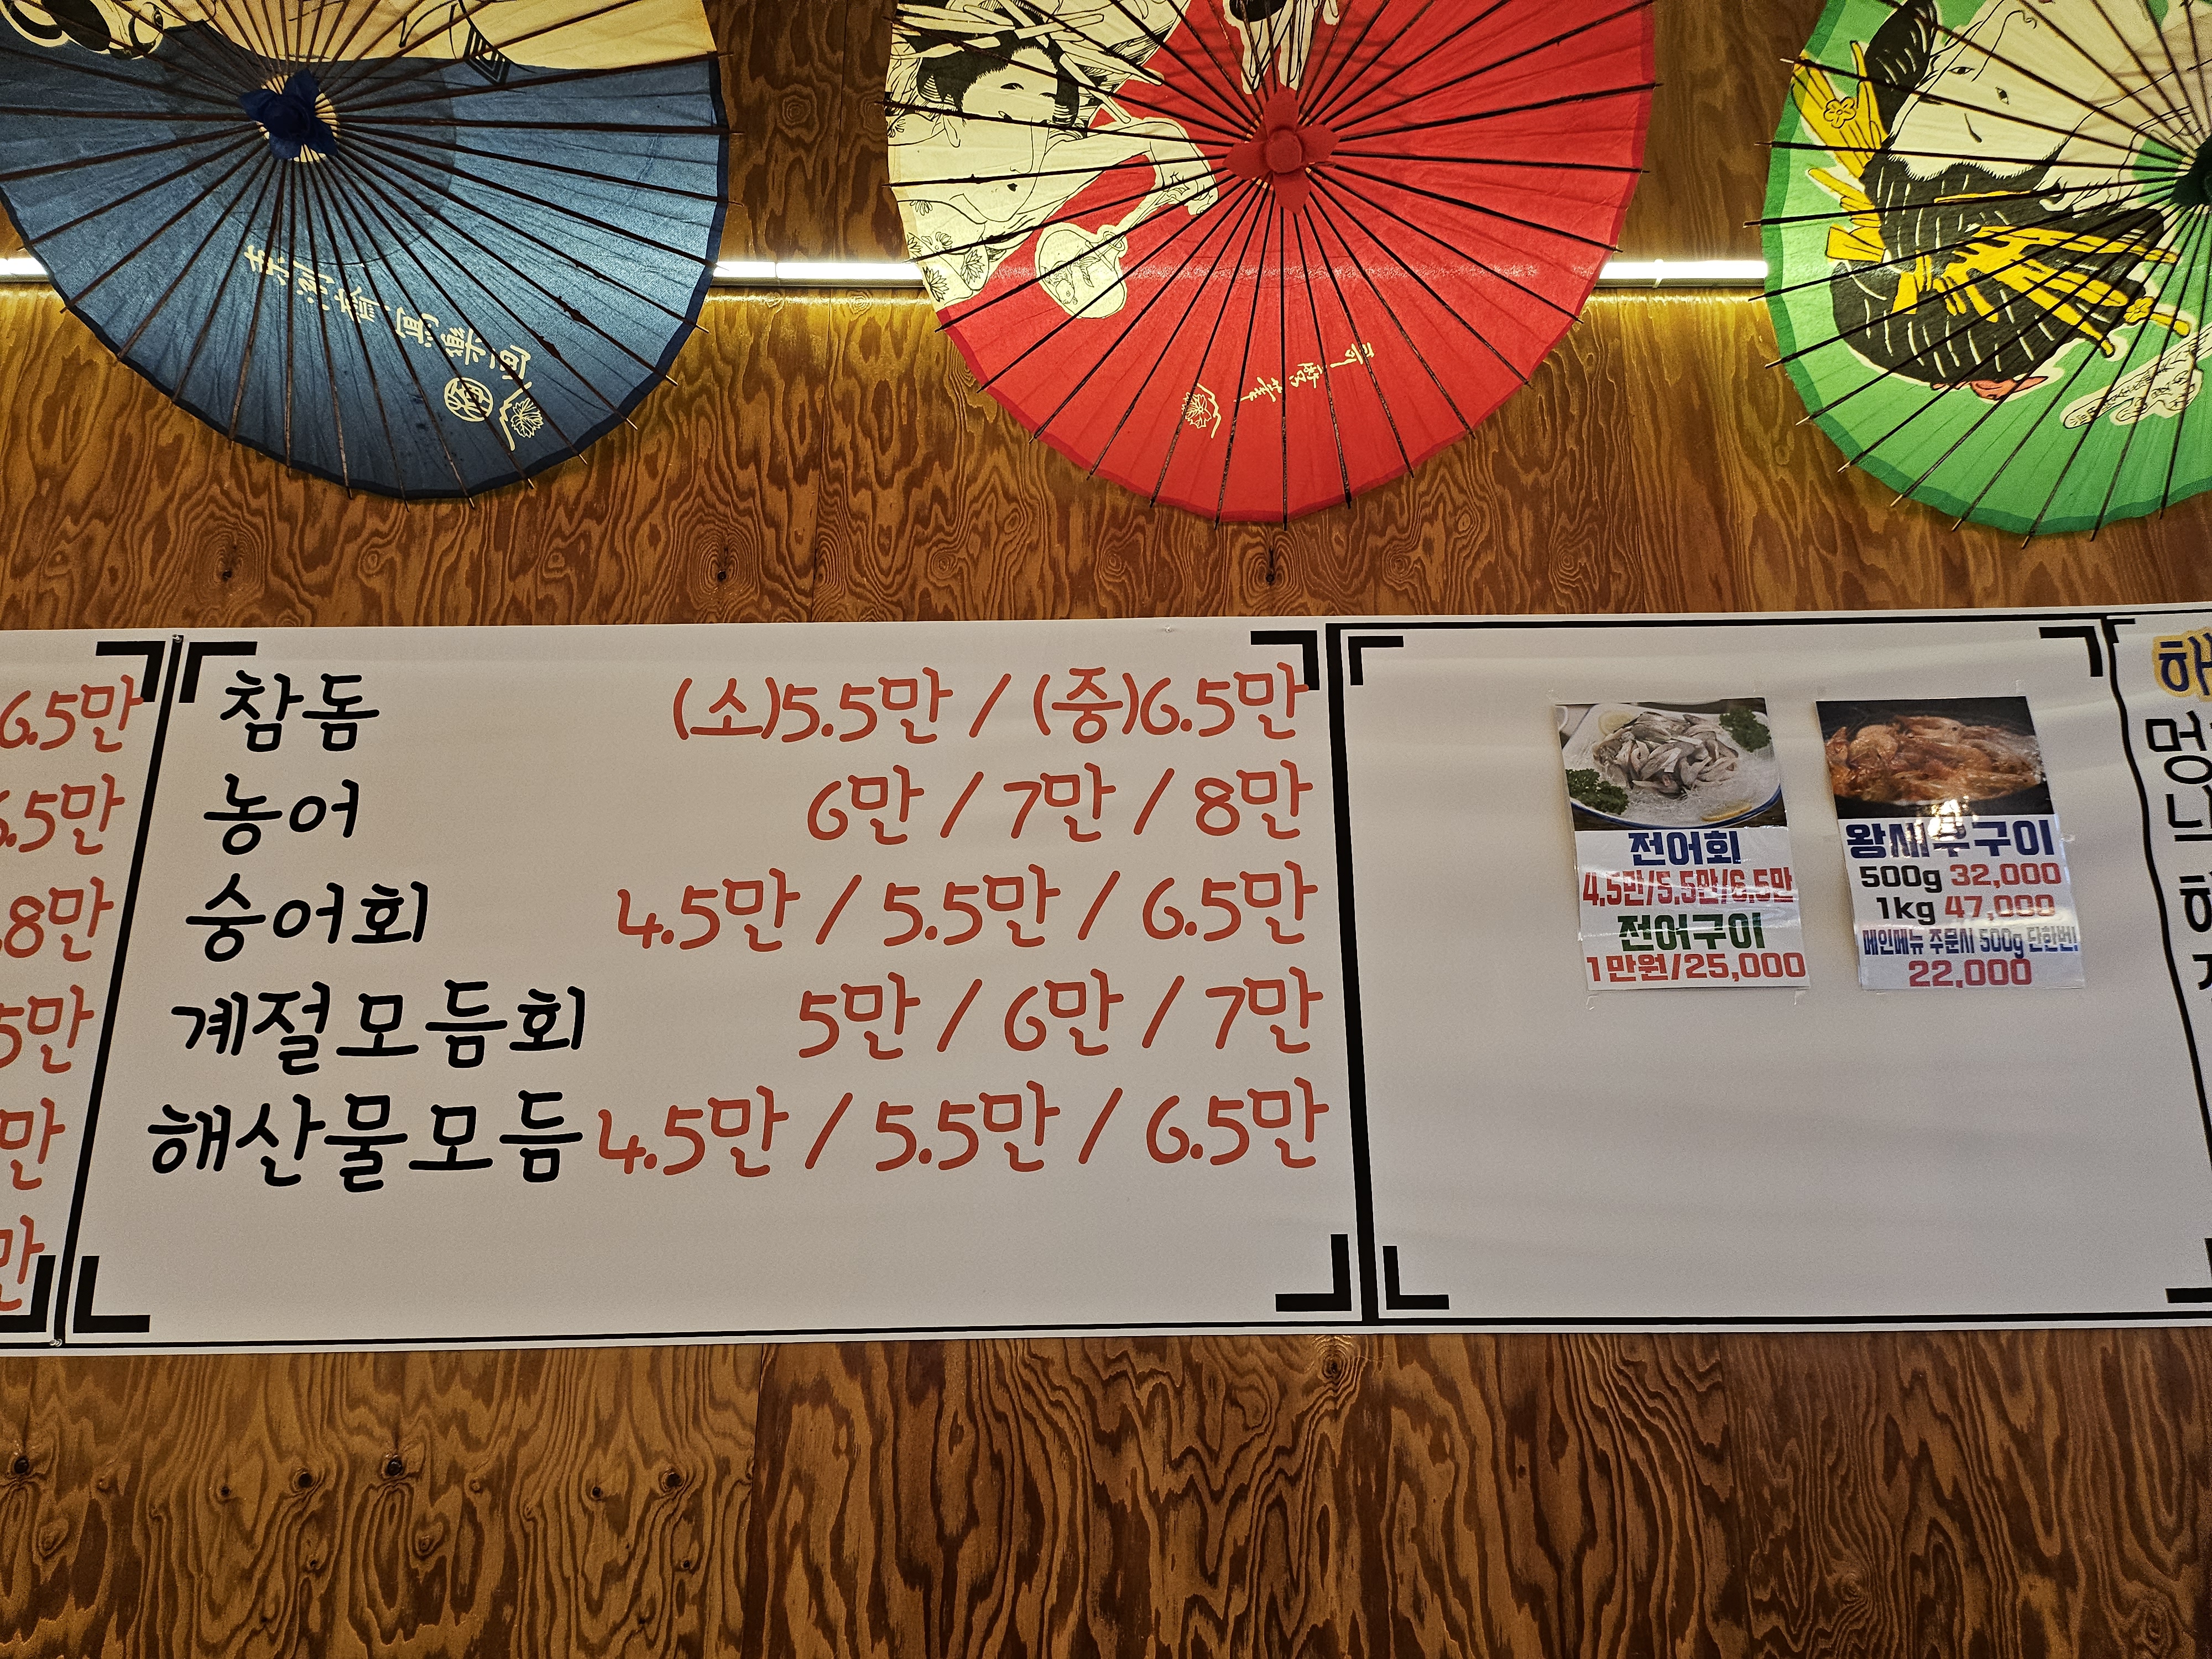 6.5만
6.5만
8만
5만
만
만
참돔 (소)5.5만 / (중)6.5만
농어 6만 / 7만 / 8만
숭어회 4.5만 / 5.5만 / 6.5만
계절모듬회 5만 / 6만 / 7만
해산물모듬 4.5만 / 5.5만 / 6.5만
전어회
4,5만/5,5만/6,5만
전어구이
1만원/25,000
왕새우구이
500g 32,000
1kg 47,000
메인메뉴 주문시 500g 단한번!
22,000
해
멍